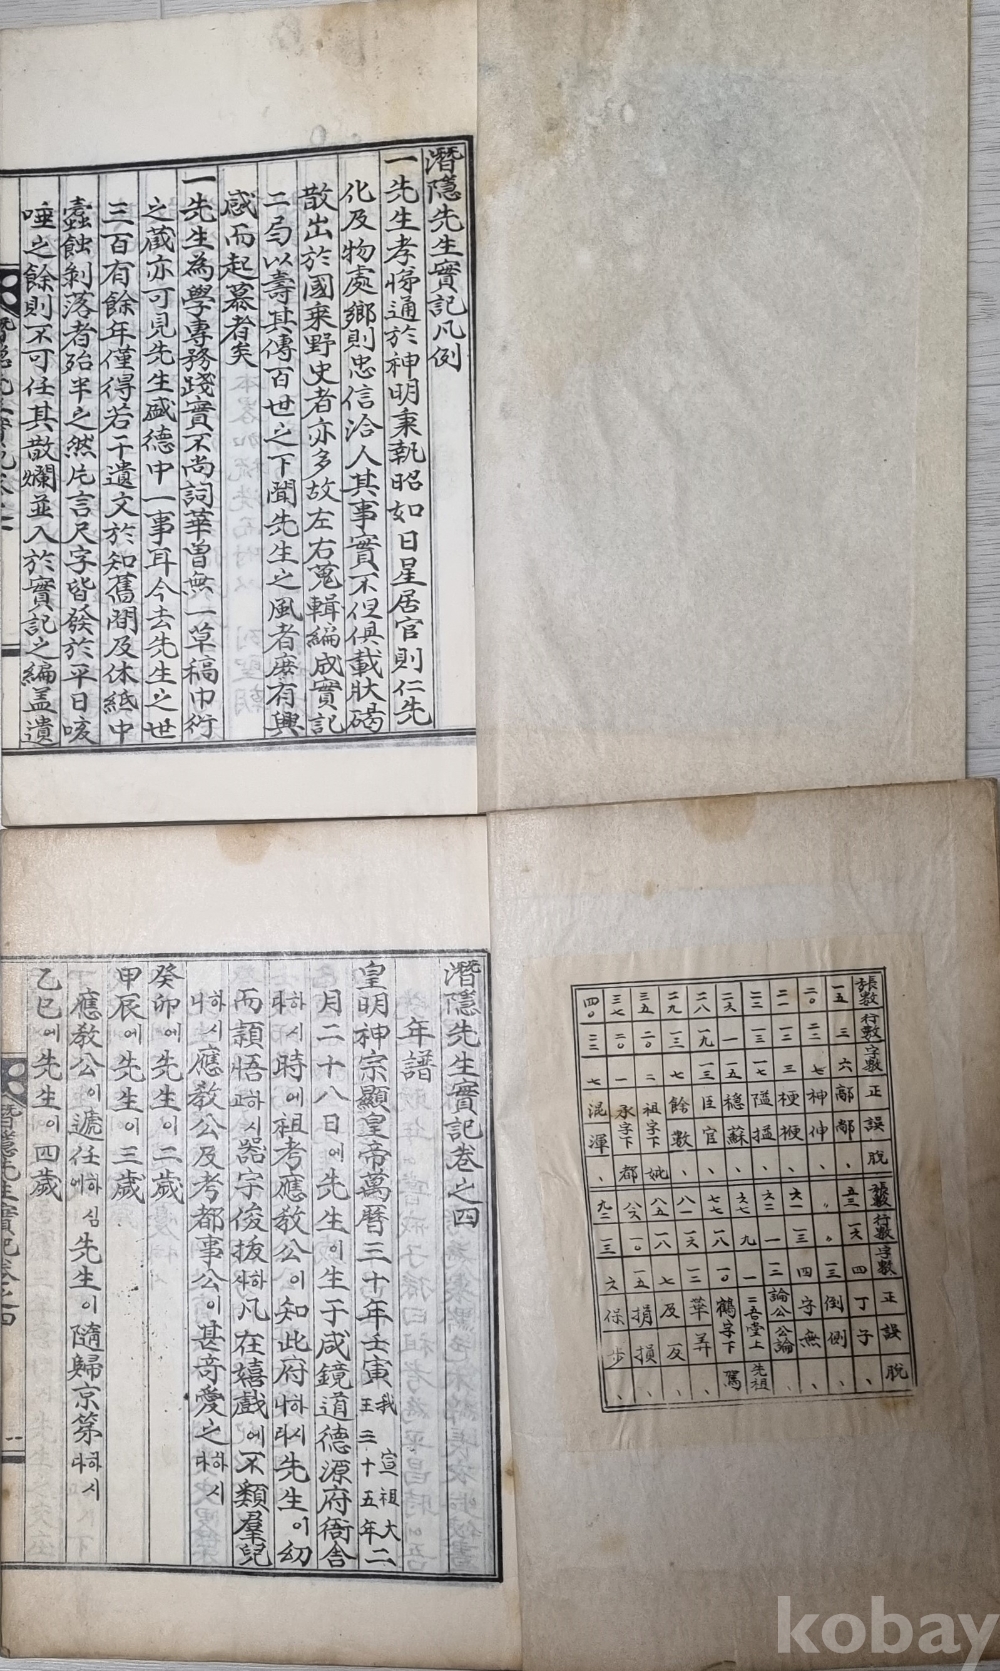 潛隱先生實記凡例
一先生孝悌通於神明秉執昭如日星居官則仁先
化及物處鄉則忠信洽人其事實不但俱載狀碣
散出於國乘野史者亦多故左右蒐輯編成實記
二𢎥以壽其傳百世之下聞先生之風者庶有興
感而起慕者矣
一先生為學專務踐實不尚詞華曾無一草稿巾衍
之蔵亦可見先生盛德中一事耳今去先生之世
三百有餘年僅得若干遺文於知舊間及休紙中
蠹蝕剝落者殆半之然片言尺字皆發於平日咳
唾之餘則不可任其散爛並入於實記之編盖遺
潛隱先生實記卷之四
年譜
皇明神宗顯皇帝萬曆三十年壬寅我宣祖大王三十五年二
月二十八日에先生이生于咸鏡道德源府衙舍
하시다時에祖考應教公이知此府하시다先生이幼
而穎悟하시며器宇俊拔하사凡在嬉戲에不類羣兒
하시다應教公及考都事公이甚奇愛之하시다
癸卯에先生이二歲
甲辰에先生이三歲
應教公이遞任하심에先生이隨歸京第하시다
乙巳에先生이四歲
張數 行數 字數 正 誤 脫
一五 三 六 鄗 鄗 、
二〇 二二 七 神 伸 、
二一 一二 三 梗 梗 、
二三 一三 一七 隘 搤 、
二六 一 一五 穩 蘇 、
二八 一九 一三 臣 官 、
二九 一三 七 餘 數 、
三五 二〇 二 祖字下 妣
三七 二〇 一 承字下 都
四〇 二二 七 混 渾 、
張數 行數 字數 正 誤 脫
五三 一六 四 丁 子 、
〃 〃 一三 倒 側 、
六一 一三 四 字 無 、
六二 一 一二 論公 公論 、
六七 九 一 二吾堂上 先祖
七七 一八 一〇 鶴字下 駕
八一 一六 一二 華 弄 、
八五 一八 七 及 反 、
八六 一〇 一五 捐 損 、
九二 一三 六 保 步 、
kobay